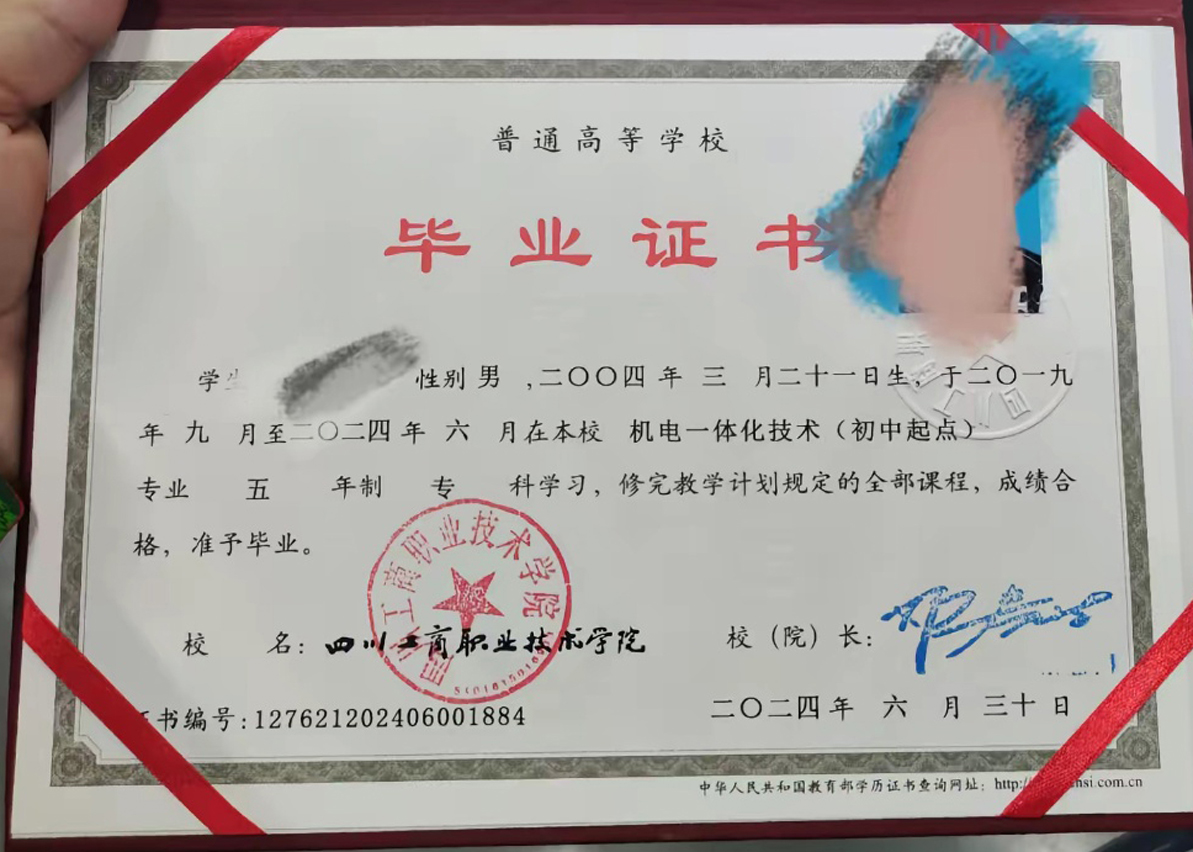 普通高等学校
毕业证书
学生 性别 男 ,二〇〇四 年 三 月二十一日生，于二〇一九
年 九 月至二〇二四 年 六 月在本校 机电一体化技术（初中起点）
专业 五 年制 专 科学习，修完教学计划规定的全部课程，成绩合
格，准予毕业。
四川工商职业技术学院
校 名：四川工商职业技术学院 校（院）长：
证书编号:127621202406001884 二〇二四 年 六 月 三十 日
中华人民共和国教育部学历证书查询网址：http:// si.com.cn